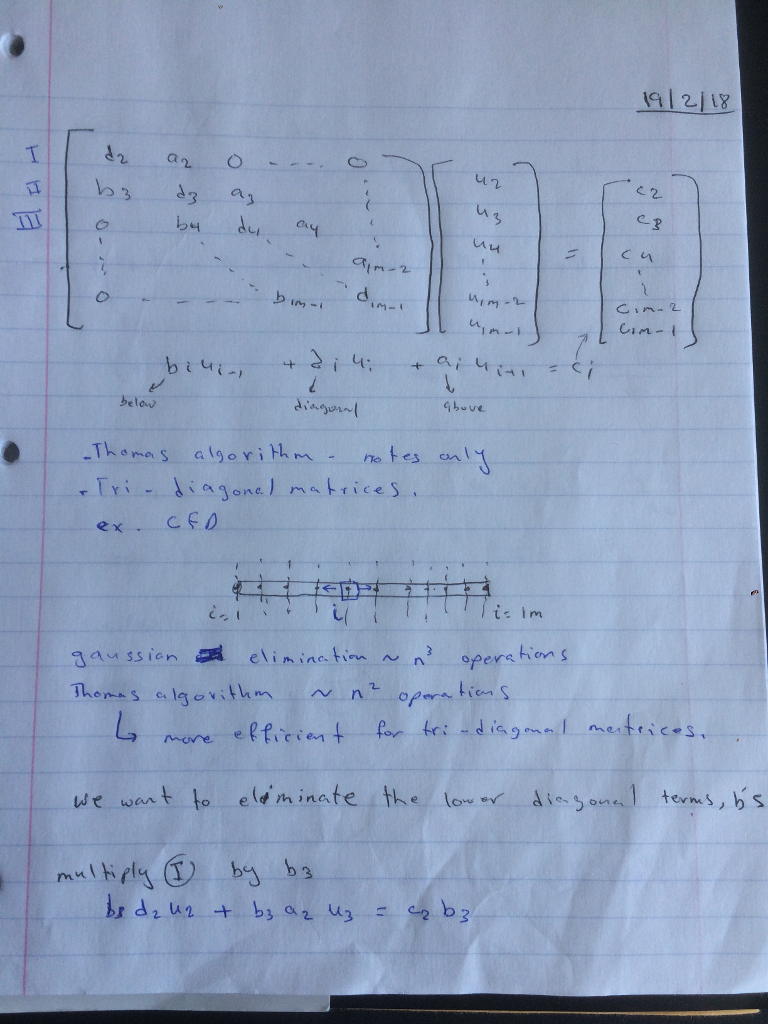 19/2/18
I d2 a2 0 - - - - 0 u2 c2
II b3 d3 a3 u3 c3
III 0 b4 d4 a4 u4 = c4
aim-2 uim-2 cim-2
0 - - - - bim-1 dim-1 uim-1 cim-1
bi ui-1 + di ui + ai ui+1 = ci
below diagonal above
- Thomas algorithm - notes only
- Tri - diagonal matrices.
ex. CFD
i=1 i i= im
gaussian elimination ~ n³ operations
Thomas algorithm ~ n² operations
↳ more efficient for tri-diagonal matrices.
we want to eliminate the lower diagonal terms, b's
multiply Ⓘ by b3
b3 d2 u2 + b3 a2 u3 = c2 b3